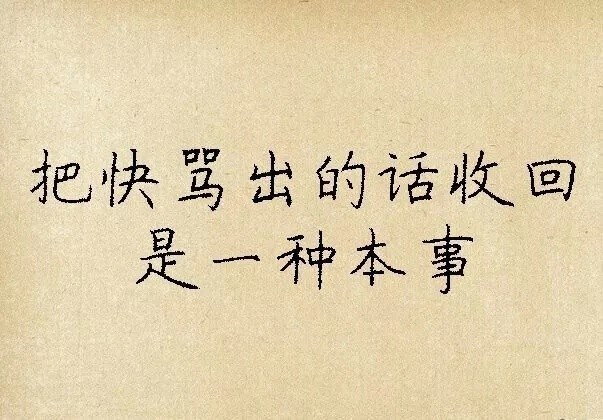 把快骂出的话收回
是一种本事